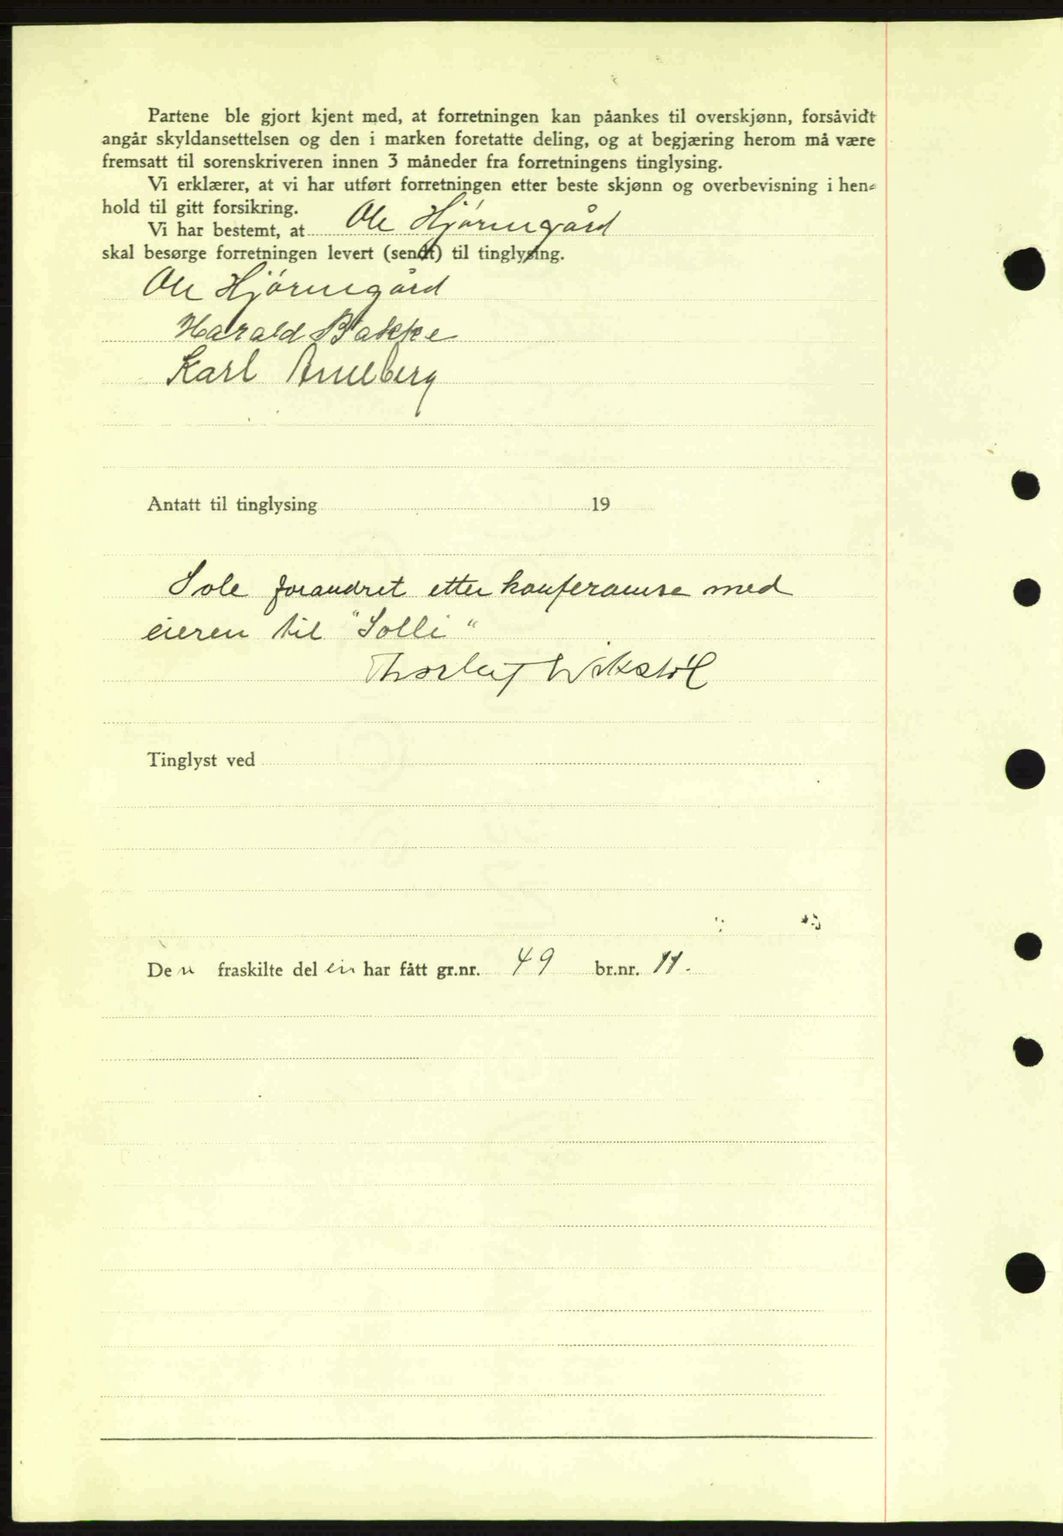 Partene ble gjort kjent med, at forretningen kan påankes til overskjønn, forsåvidt
angår skyldansettelsen og den i marken foretatte deling, og at begjæring herom må være
fremsatt til sorenskriveren innen 3 måneder fra forretningens tinglysing.
Vi erklærer, at vi har utført forretningen etter beste skjønn og overbevisning i hen-
hold til gitt forsikring.
Vi har bestemt, at Ole Hjörnegård
skal besørge forretningen levert (sendt) til tinglysing.
Ole Hjörnegård
Harald Bakke
Karl
Antatt til tinglysing 19
Sole forandret etter konferanse med
eieren til "Solli"
Tinglyst ved
Den fraskilte del en har fått gr.nr. 49 br.nr. 11.